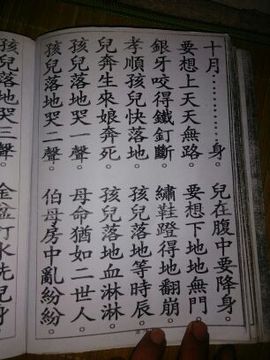 十月…………身。兒在腹中要降身。
要想上天天無路。要想下地地無門。
銀牙咬得鐵釘斷。繡鞋蹬得地翻崩。
孝順孩兒快落地。孩兒落地等時辰。
兒奔生來娘奔死。孩兒落地血淋淋。
孩兒落地哭一聲。母命猶如二世人。
孩兒落地哭二聲。伯母房中亂紛紛。
孩兒落地哭三聲。金盆打水洗兒身。